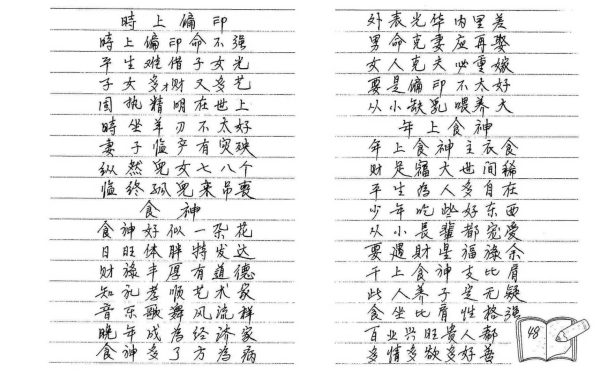 時上偏印
時上偏印命不强
平生难借子女光
子女多才财又多艺
固执精明在世上
時坐羊刃不太好
妻子临产有灾殃
纵然兒女七八个
临终孤兒来吊喪
食神
食神好似一朵花
日旺体胖特发达
财祿丰厚有道德
知礼孝顺艺术家
音乐歌舞风流样
晚年成為经济家
食神多了方為病
外表光华内里差
男命克妻应再娶
女人克夫必重嫁
要是偏印不太好
从小缺乳喂养大
年上食神
年上食神主衣食
财足福大世间稀
平生為人多自在
少年吃些好东西
从小長輩都宠爱
要遇財星福祿余
干上食神支比肩
此人养子定无疑
食坐比肩性格强
百业兴旺貴人都
多情多欲多好善
48